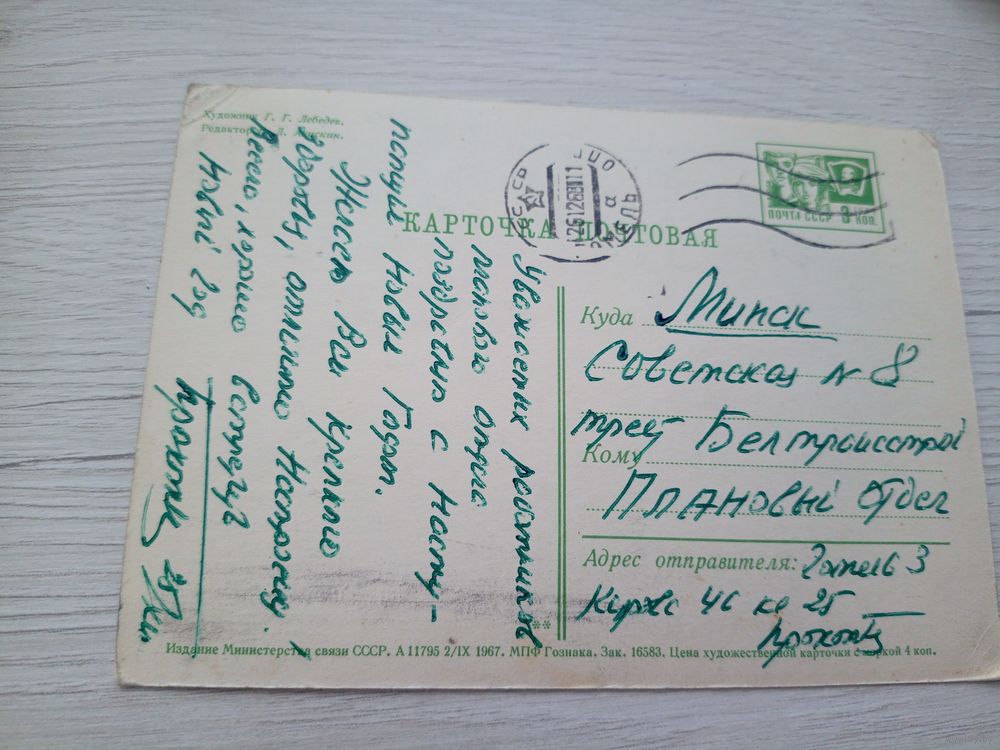 Художник Г. Г. Лебедев.
КАРТОЧКА ПОЧТОВАЯ
ПОЧТА СССР
КОП.
СССР
Уважаемых работников
планового отдела
поздравляю с насту-
пающим Новым Годом.
Желаю Вам крепкого
здоровья, отличного
Весело, хорошо встретить
Новый год
Куда
Минск
Советская N 8
трест Белтрансстрой
Кому
Плановый отдел
Адрес отправителя: Гомель 3
46 кв 25
Издание Министерства связи СССР. А 11795 2/IX 1967. МПФ Гознака. Зак. 16583. Цена художественной карточки с маркой 4 коп.